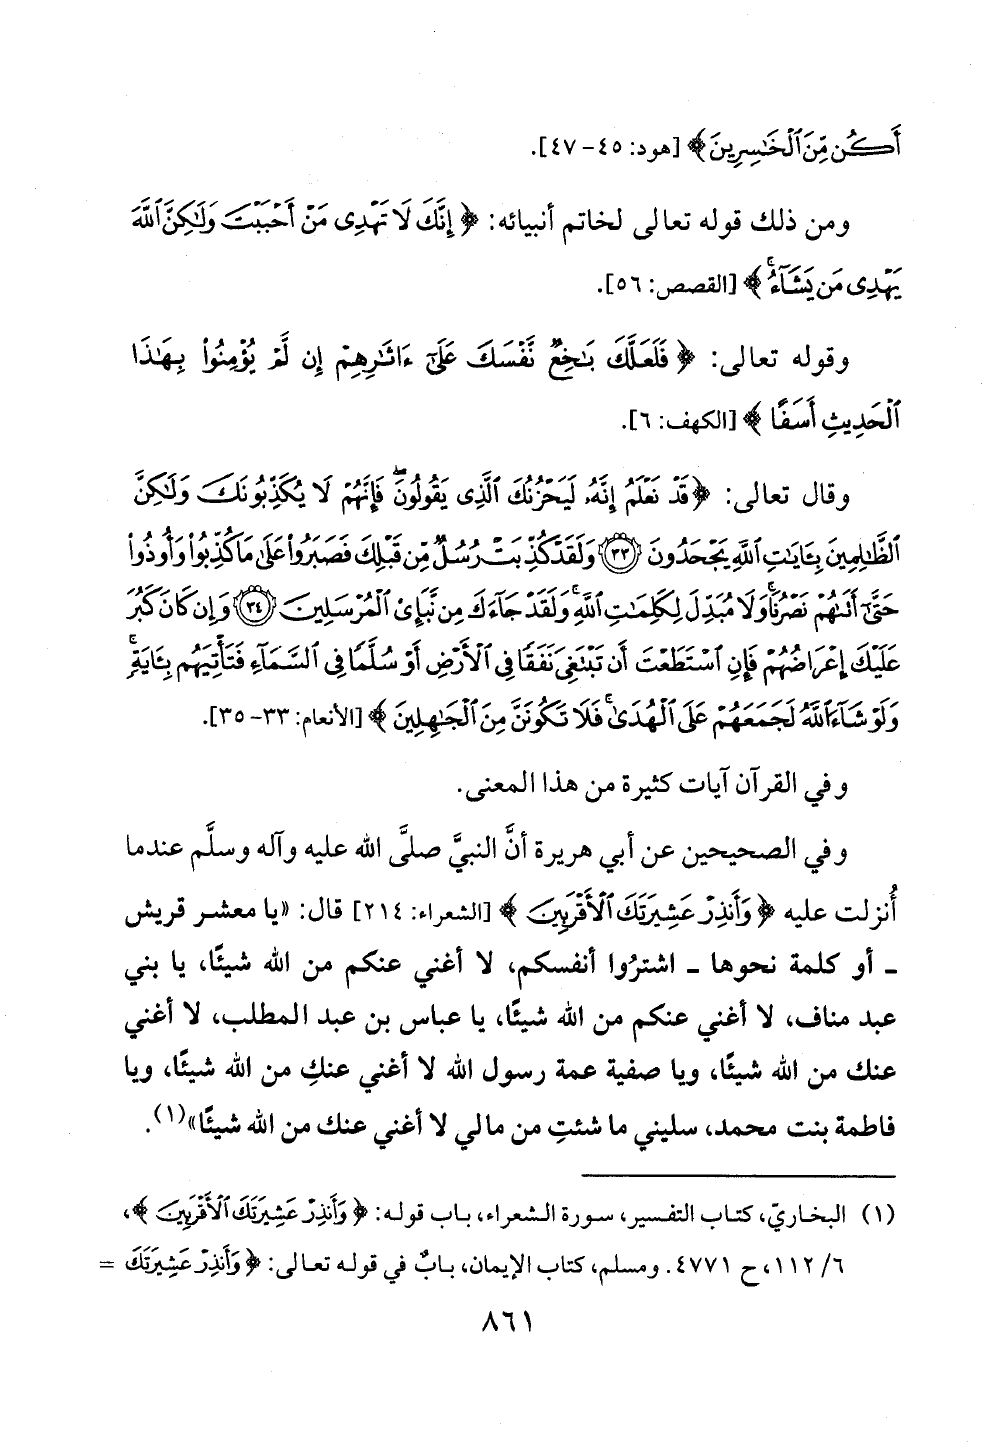 أَكُن مِّنَ ٱلْخَٰسِرِينَ﴾ [هود: ٤٥-٤٧].
ومن ذلك قوله تعالى لخاتم أنبيائه: ﴿إِنَّكَ لَا تَهْدِى مَنْ أَحْبَبْتَ وَلَٰكِنَّ ٱللَّهَ
يَهْدِى مَن يَشَآءُ ۚ﴾ [القصص: ٥٦].
وقوله تعالى: ﴿فَلَعَلَّكَ بَٰخِعٌ نَّفْسَكَ عَلَىٰٓ ءَاثَٰرِهِمْ إِن لَّمْ يُؤْمِنُوا۟ بِهَٰذَا
ٱلْحَدِيثِ أَسَفًا﴾ [الكهف: ٦].
وقال تعالى: ﴿قَدْ نَعْلَمُ إِنَّهُۥ لَيَحْزُنُكَ ٱلَّذِى يَقُولُونَ ۖ فَإِنَّهُمْ لَا يُكَذِّبُونَكَ وَلَٰكِنَّ
ٱلظَّٰلِمِينَ بِـَٔايَٰتِ ٱللَّهِ يَجْحَدُونَ ٣٣ وَلَقَدْ كُذِّبَتْ رُسُلٌ مِّن قَبْلِكَ فَصَبَرُوا۟ عَلَىٰ مَا كُذِّبُوا۟ وَأُوذُوا۟
حَتَّىٰٓ أَتَىٰهُمْ نَصْرُنَا ۚ وَلَا مُبَدِّلَ لِكَلِمَٰتِ ٱللَّهِ ۚ وَلَقَدْ جَآءَكَ مِن نَّبَإِى۟ ٱلْمُرْسَلِينَ ٣٤ وَإِن كَانَ كَبُرَ
عَلَيْكَ إِعْرَاضُهُمْ فَإِنِ ٱسْتَطَعْتَ أَن تَبْتَغِىَ نَفَقًا فِى ٱلْأَرْضِ أَوْ سُلَّمًا فِى ٱلسَّمَآءِ فَتَأْتِيَهُم بِـَٔايَةٍ ۚ
وَلَوْ شَآءَ ٱللَّهُ لَجَمَعَهُمْ عَلَى ٱلْهُدَىٰ ۚ فَلَا تَكُونَنَّ مِنَ ٱلْجَٰهِلِينَ﴾ [الأنعام: ٣٣-٣٥].
وفي القرآن آيات كثيرة من هذا المعنى.
وفي الصحيحين عن أبي هريرة أنَّ النبيَّ صلَّى الله عليه وآله وسلَّم عندما
أُنزلت عليه ﴿وَأَنذِرْ عَشِيرَتَكَ ٱلْأَقْرَبِينَ﴾ [الشعراء: ٢١٤] قال: «يا معشر قريش
ـ أو كلمة نحوها ـ اشترُوا أنفسكم، لا أغني عنكم من الله شيئًا، يا بني
عبد مناف، لا أغني عنكم من الله شيئًا، يا عباس بن عبد المطلب، لا أغني
عنك من الله شيئًا، ويا صفية عمة رسول الله لا أغني عنكِ من الله شيئًا، ويا
فاطمة بنت محمد، سليني ما شئتِ من مالي لا أغني عنك من الله شيئًا»(١).
(١) البخاريّ، كتاب التفسير، سورة الشعراء، باب قوله: ﴿وَأَنذِرْ عَشِيرَتَكَ ٱلْأَقْرَبِينَ﴾،
٦/١١٢، ح ٤٧٧١. ومسلم، كتاب الإيمان، بابٌ في قوله تعالى: ﴿وَأَنذِرْ عَشِيرَتَكَ =
٨٦١